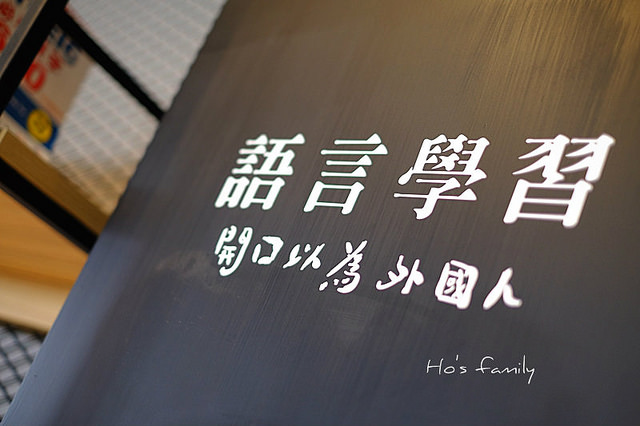 語言學習
開口以為外國人
Ho's family